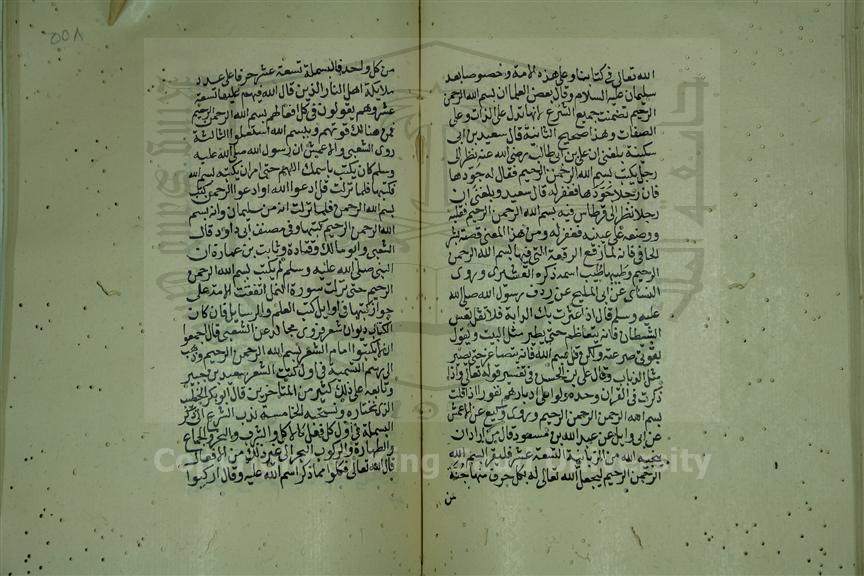 الله تعالى في كتابنا وعلى هذه الامة وخصوصا بعد
سليمان عليه السلام وقال بعض العلما ان بسم الله الرحمن
الرحيم تضمنت جميع الشرع لانها تدل على الذات وعلى
الصفات وهذا صحيح الثانية قال سعيد بن ابى
سكينة بلغنى ان على بن ابى طالب رضى الله عنه نظر الى
رجل يكتب بسم الله الرحمن الرحيم فقال له جودها
فان رجلا جودها فغفر له قال سعيد وبلغنى ان
رجلا نظر الى قرطاس فيه بسم الله الرحمن الرحيم فقبله
ووضعه على عينيه فغفر له ومن هذا المعنى قصة بشر
الحافى فانه لما رفع الرقعة التى فيها بسم الله الرحمن
الرحيم وطيبها طيب اسمه ذكره القشيرى وروى
النسائى عن ابى المليح عن ردف رسول الله صلى الله
عليه وسلم قال اذا عثرت بك الدابة فلا تقل تعس
الشيطان فانه يتعاظم حتى يطير مثل البيت ويقول
بقوتى صرعته ولكن قل بسم الله فانه يتصاغر حتى يصير
مثل الذباب وقال على بن الحسين فى تفسير قوله تعالى واذا
ذكرت فى القران وحده ولوا على ادبارهم نفورا اذا قلت
بسم الله الرحمن الرحيم وروى وكيع عن الاعمش
عن ابى وايل عن عبد الله بن مسعود قال من اراد ان
ينجيه الله من الزبانية التسعة عشر فليقرا بسم الله
الرحمن الرحيم ليجعل الله تعالى له بكل حرف منها جنة
من
٥٥٨
من كل واحد فالبسملة تسعة عشر حرفا على عدد
ملايكة اهل النار الذين قال الله فيهم عليها تسعة
عشر وهم يقولون فى كل افعالهم بسم الله الرحمن الرحيم
فمن هنالك قوتهم وببسم الله استعلوا الثالثة
روى الشعبى والاعمش ان رسول الله صلى الله عليه
وسلم كان يكتب باسمك اللهم حتى امر ان يكتب بسم الله
فكتبها فلما نزلت قل ادعوا الله او ادعوا الرحمن كتب
بسم الله الرحمن فلما نزلت انه من سليمان وانه بسم
الله الرحمن الرحيم كتبها وفى مصنف ابى داود قال
الشعبى وابو مالك وقتادة وثابت بن عمارة ان
النبى صلى الله عليه وسلم لم يكتب بسم الله الرحمن
الرحيم حتى نزلت سورة النمل اتفقت الامة على
جواز كتبها فى اوايل كتب العلم والرسايل فان كان
الكتاب ديوان شعر فروى مجالد عن الشعبى قال اجمعوا
ان لا يكتبوا امام الشعر بسم الله الرحمن الرحيم وذهب
الى رسم التسمية فى اول كتب الشعر سعيد بن جبير
وتابعه على ذلك كثير من المتاخرين قال ابو بكر الخطيب
الذى نختاره ونستحبه الخامسة ندب الشرع الى ذكر
البسملة فى اول كل فعل كالاكل والشرب والنحر والجماع
والطهارة والركوب البحر الى غير ذلك من الافعال
قال الله تعالى فكلوا مما ذكر اسم الله عليه وقال اركبوا